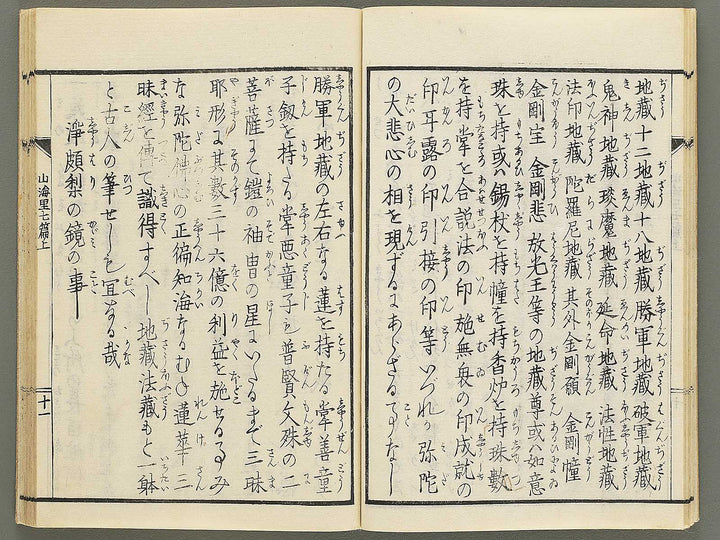 地藏十二地藏十八地藏勝軍地藏破軍地藏
鬼神地藏琰魔地藏延命地藏法性地藏
法印地藏陀羅尼地藏其外金剛願金剛幢
金剛宝金剛悲放光王等の地藏尊或ハ如意
珠を持或ハ錫杖を持幢を持香炉を持珠數
を持掌を合説法の印施無畏の印成就の
印甘露の印引接の印等いづれか弥陀
の大悲心の相を現ずるにあらざる事なし
勝軍地藏の左右なる蓮を持たる掌善童
子釼を持たる掌悪童子も普賢文殊の二
菩薩にて鎧の袖冑の星にいたるまで三昧
耶形に其數三十六億の利益を施せるるみ
な弥陀佛心の正徧知海なるむね蓮華三
昧經を傳て識得すべし地藏法藏もと一躰
と古人の筆せしも宜なる哉
淨頗梨の鏡の事
山海里七篇上
十一